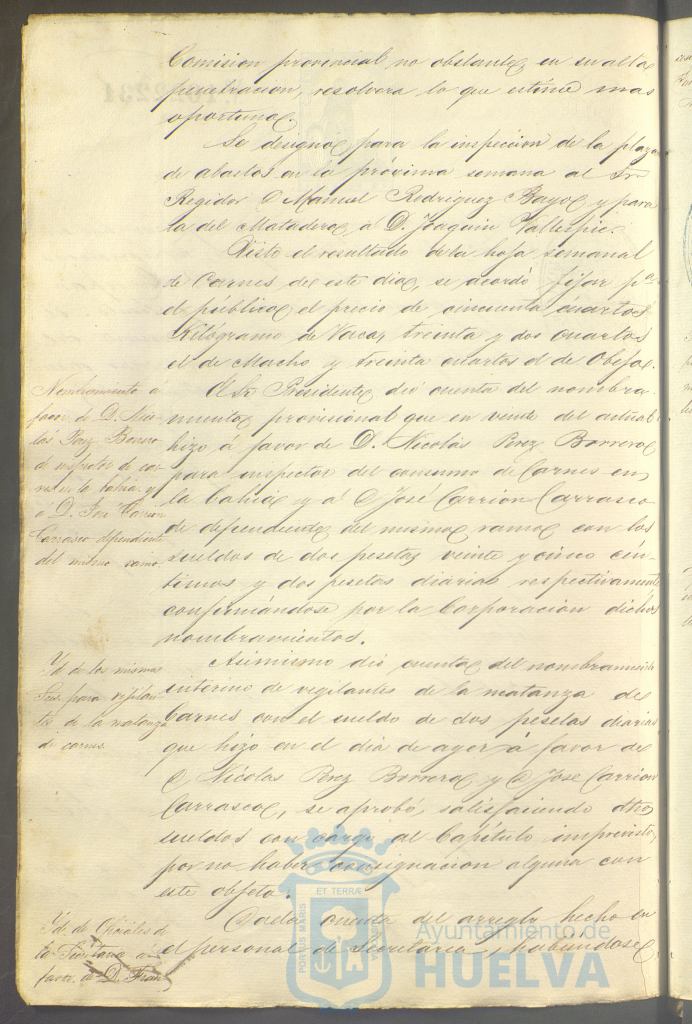 Comision provincial no obstante, en su alta
penetracion, resolverá lo que estime mas
oportuno.
Se designó para la inspeccion de la plaza
de abastos en la próxima semana al Sr
Regidor D Manuel Rodriguez Bayo y para
la del Matadero á D. Joaquin Vallespin.
Visto el resultado de la hoja semanal
de Carnes de este dia, se acordó fijar pa
el público el precio de cincuenta cuartos
Kilógramo de Vaca, treinta y dos cuartos
el de Macho y treinta cuartos el de Oveja.
El Sr Presidente dió cuenta del nombra-
miento provisional que en veinte del actual
hizo á favor de D. Nicolás Perez Borrero
para inspector del consumo de Carnes en
la bahia y á D José Carrion Carrasco
de dependiente del mismo ramo con los
sueldos de dos pesetas veinte y cinco cén-
timos y dos pesetas diarias respectivamente
confirmándose por la Corporacion dichos
nombramientos.
Asimismo dió cuenta del nombramiento
interino de vigilantes de la matanza de
Carnes con el sueldo de dos pesetas diarias
que hizo en el dia de ayer á favor de
D Nicolás Perez Borrero y D José Carrion
Carrasco, se aprobó, satisfaciendo dhos
sueldos con cargo al Capítulo imprevisto,
por no haber consignacion alguna con
este objeto.
Dada cuenta del arreglo hecho en
el personal de Secretaria, habiéndose
Nombramiento a
favor de D. Nico-
lás Perez Borrero
de inspector de car-
nes en la bahia y
á D. José Carrion
Carrasco dependiente
del mismo ramo
Yd. de los mismos
Sres. para vigilan-
tes de la matanza
de carnes.
Yd. de Oficiales de
la Secretaria á
favor de D. Fran
ET TERRÆ
PORTUS MARIS
CUSTODIA
Ayuntamiento de
HUELVA